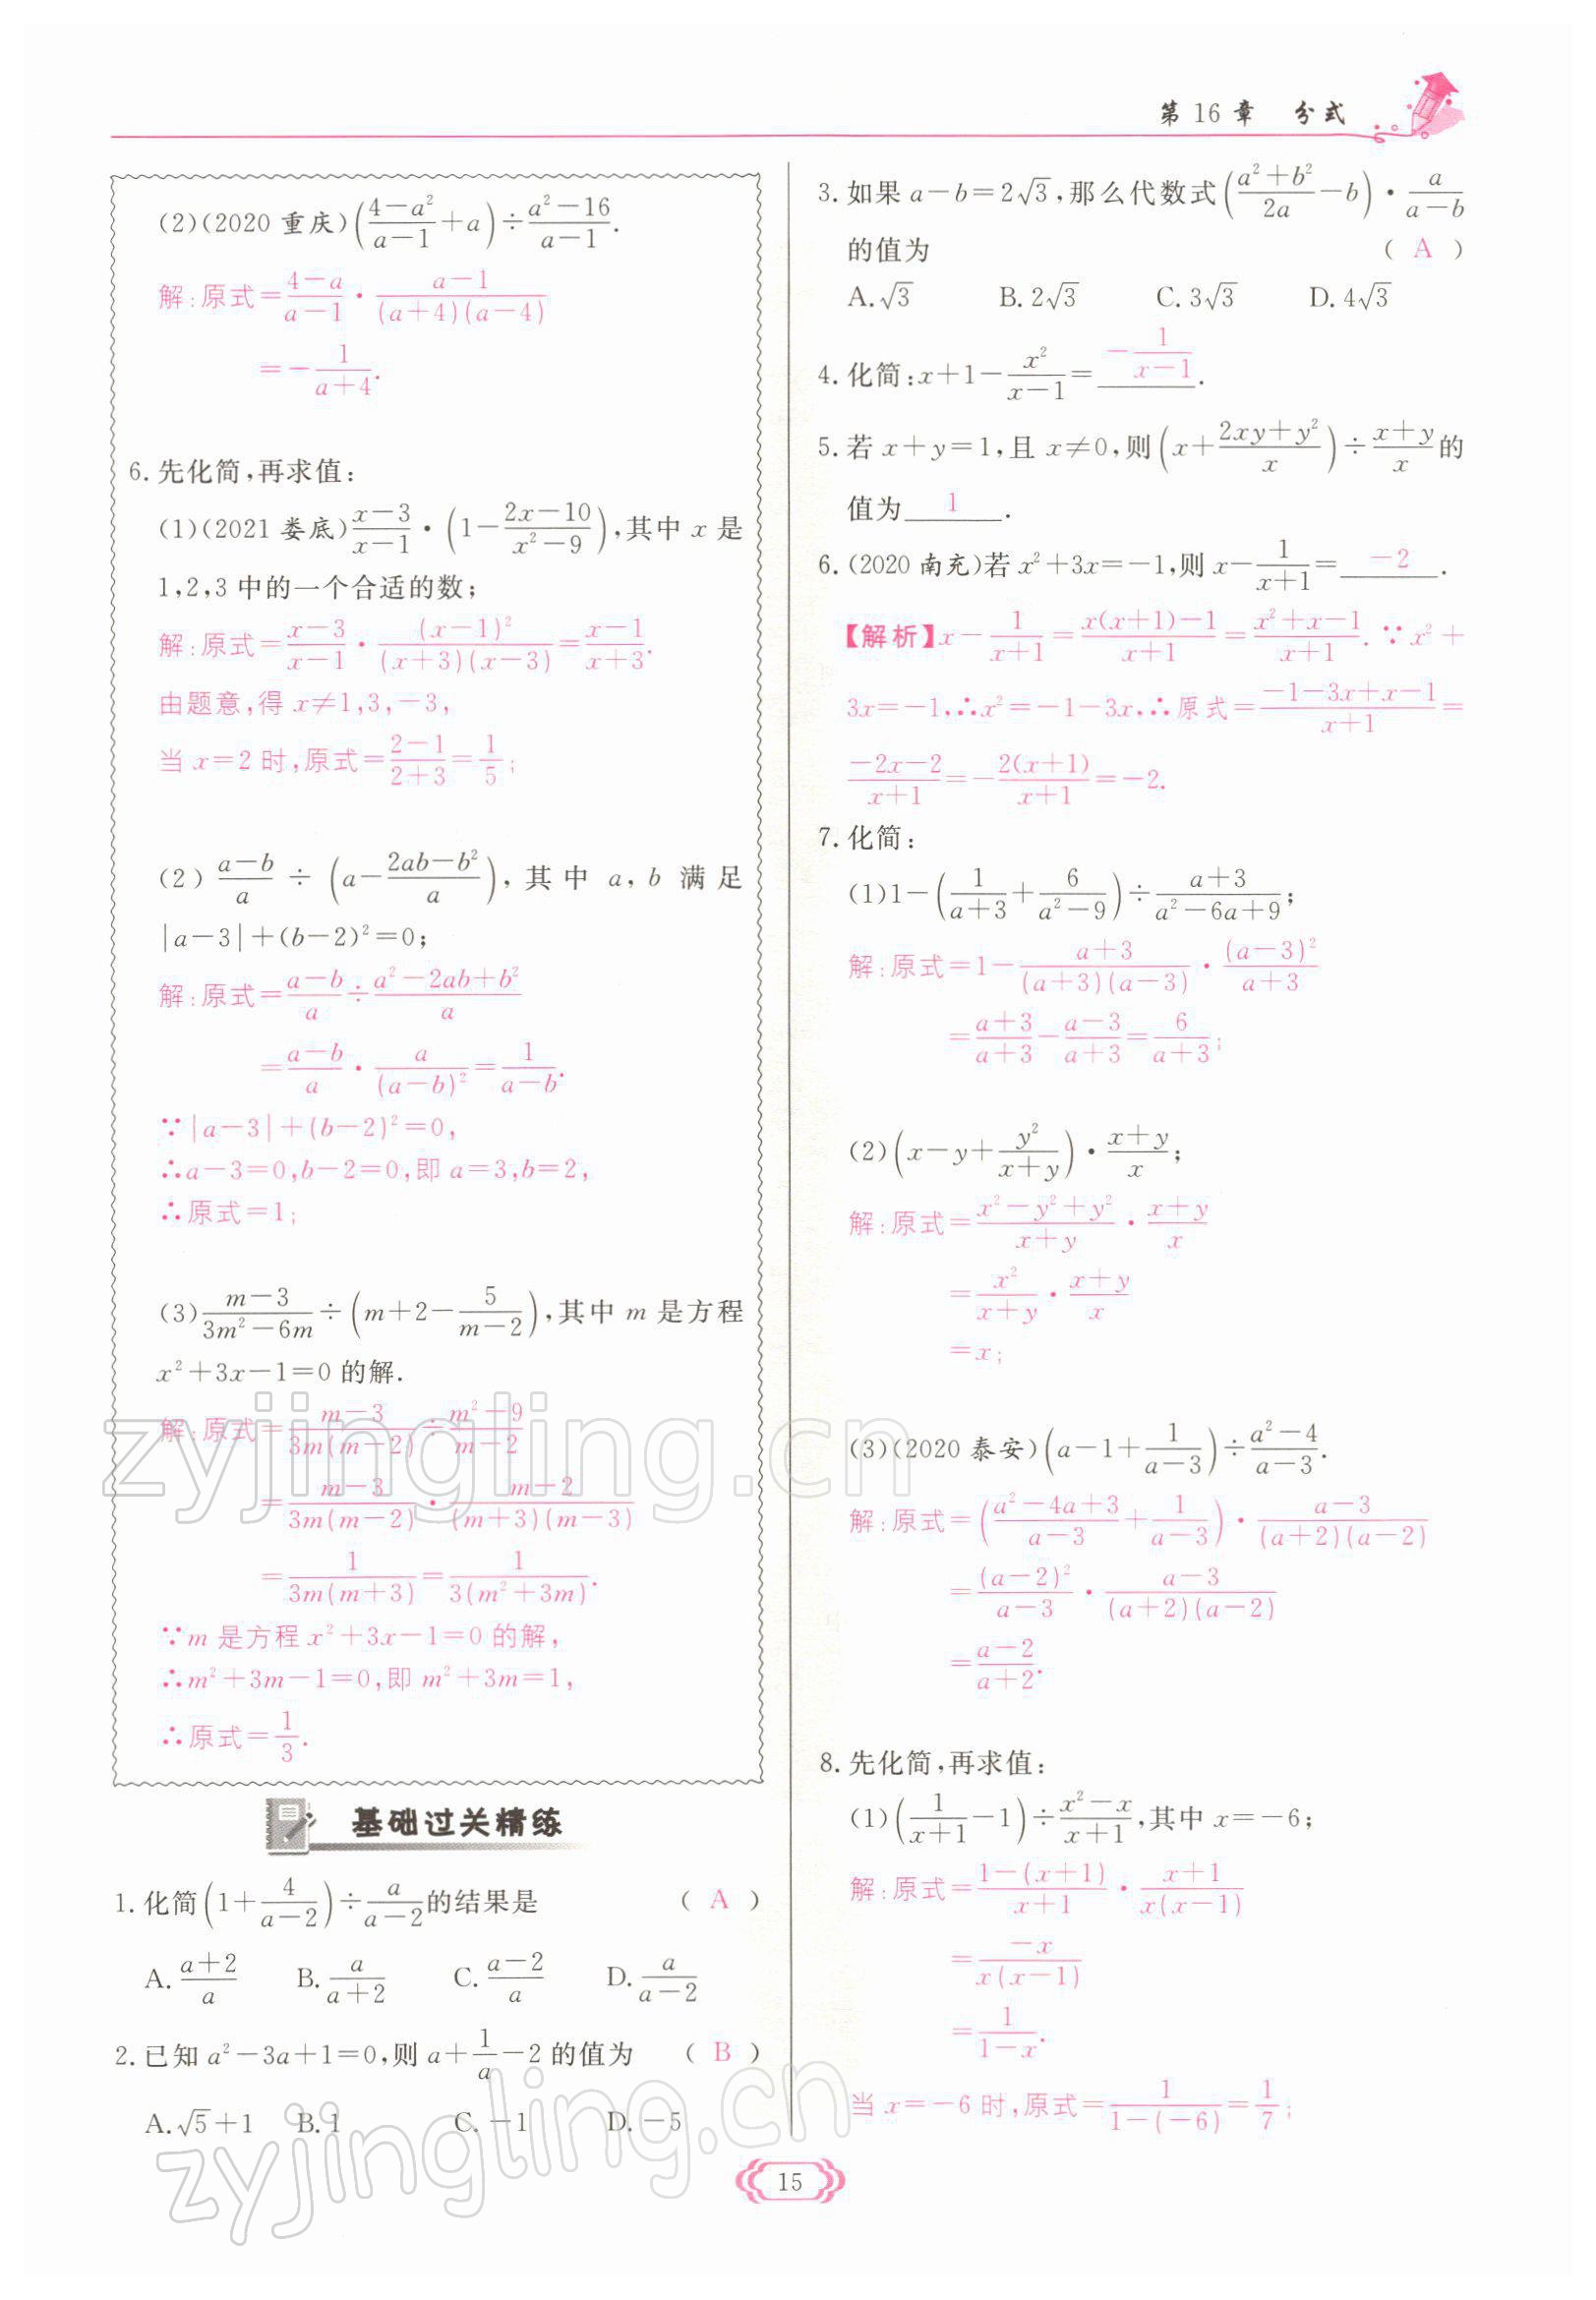 第 16 章　分式
(2)(2020 重庆)((4−a²)/(a−1)+a)÷(a²−16)/(a−1).
解:原式=(4−a)/(a−1)·(a−1)/((a+4)(a−4))
=−1/(a+4).
6.先化简,再求值:
(1)(2021 娄底)(x−3)/(x−1)·(1−(2x−10)/(x²−9)),其中 x 是
1,2,3 中的一个合适的数;
解:原式=(x−3)/(x−1)·(x−1)²/((x+3)(x−3))=(x−1)/(x+3).
由题意,得 x≠1,3,−3,
当 x=2 时,原式=(2−1)/(2+3)=1/5;
(2)(a−b)/a÷(a−(2ab−b²)/a),其中 a,b 满足
|a−3|+(b−2)²=0;
解:原式=(a−b)/a÷(a²−2ab+b²)/a
=(a−b)/a·a/(a−b)²=1/(a−b).
∵|a−3|+(b−2)²=0,
∴a−3=0,b−2=0,即 a=3,b=2,
∴原式=1;
(3)(m−3)/(3m²−6m)÷(m+2−5/(m−2)),其中 m 是方程
x²+3x−1=0 的解.
解:原式=(m−3)/(3m(m−2))÷(m²−9)/(m−2)
=(m−3)/(3m(m−2))·(m−2)/((m+3)(m−3))
=1/(3m(m+3))=1/(3(m²+3m)).
∵m 是方程 x²+3x−1=0 的解,
∴m²+3m−1=0,即 m²+3m=1,
∴原式=1/3.
基础过关精练
1.化简(1+4/(a−2))÷a/(a−2)的结果是 ( A )
A.(a+2)/a B.a/(a+2) C.(a−2)/a D.a/(a−2)
2.已知 a²−3a+1=0,则 a+1/a−2 的值为 ( B )
A.√5+1 B.1 C.−1 D.−5
3.如果 a−b=2√3,那么代数式((a²+b²)/2a−b)·a/(a−b)
的值为 ( A )
A.√3 B.2√3 C.3√3 D.4√3
4.化简:x+1−x²/(x−1)=−1/(x−1).
5.若 x+y=1,且 x≠0,则(x+(2xy+y²)/x)÷(x+y)/x的
值为 1 .
6.(2020 南充)若 x²+3x=−1,则 x−1/(x+1)= −2 .
【解析】x−1/(x+1)=(x(x+1)−1)/(x+1)=(x²+x−1)/(x+1).∵x²+
3x=−1,∴x²=−1−3x,∴原式=(−1−3x+x−1)/(x+1)=
(−2x−2)/(x+1)=−2(x+1)/(x+1)=−2.
7.化简:
(1)1−(1/(a+3)+6/(a²−9))÷(a+3)/(a²−6a+9);
解:原式=1−(a+3)/((a+3)(a−3))·(a−3)²/(a+3)
=(a+3)/(a+3)−(a−3)/(a+3)=6/(a+3);
(2)(x−y+y²/(x+y))·(x+y)/x;
解:原式=(x²−y²+y²)/(x+y)·(x+y)/x
=x²/(x+y)·(x+y)/x
=x;
(3)(2020 泰安)(a−1+1/(a−3))÷(a²−4)/(a−3).
解:原式=((a²−4a+3)/(a−3)+1/(a−3))·(a−3)/((a+2)(a−2))
=(a−2)²/(a−3)·(a−3)/((a+2)(a−2))
=(a−2)/(a+2).
8.先化简,再求值:
(1)(1/(x+1)−1)÷(x²−x)/(x+1),其中 x=−6;
解:原式=(1−(x+1))/(x+1)·(x+1)/(x(x−1))
=−x/(x(x−1))
=1/(1−x).
当 x=−6 时,原式=1/(1−(−6))=1/7;
15
zyjingling.cn
zyjingling.cn